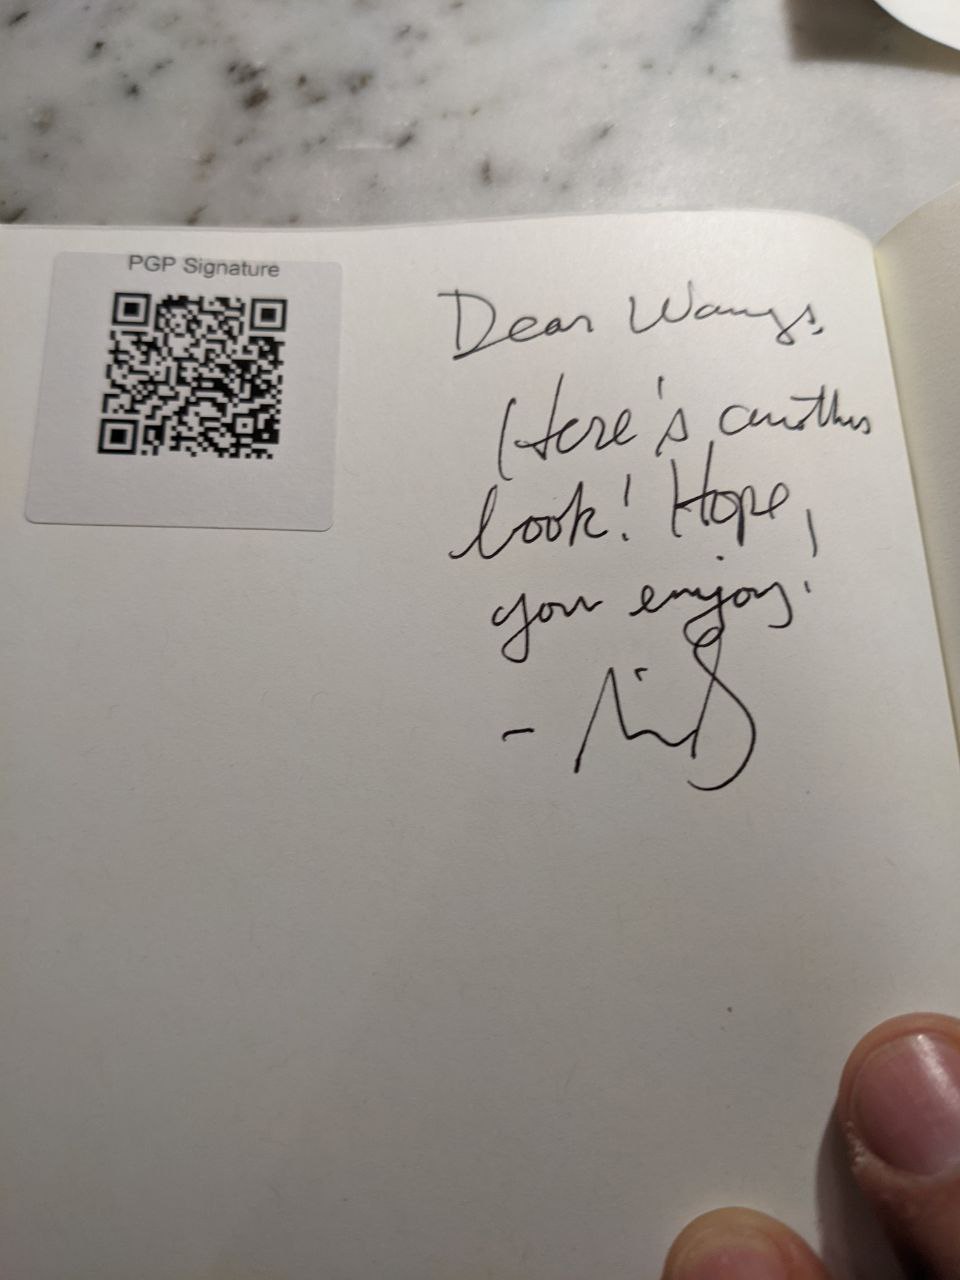 PGP Signature
Dear Wangs,
Here's another
book! Hope
you enjoy!